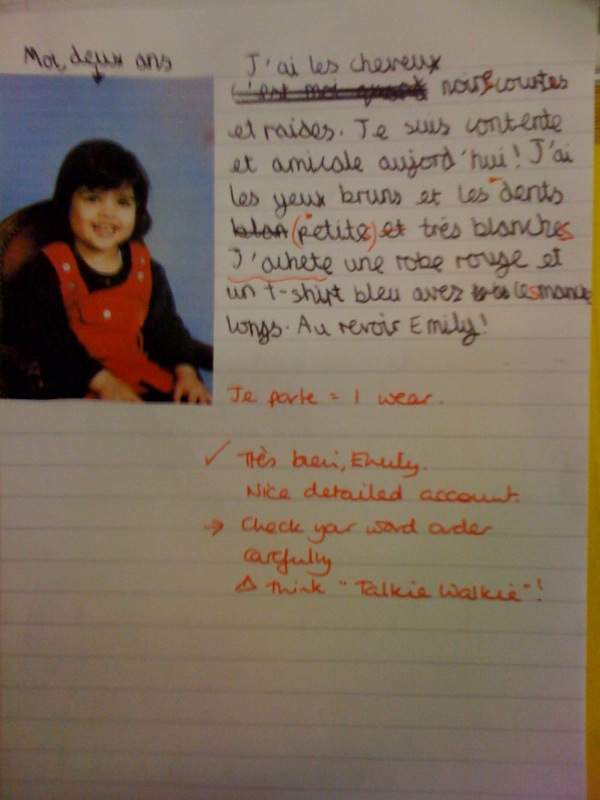 Moi, deux ans
J'ai les cheveux
c'est moi quand noirs courtes
et raides. Je suis contente
et amicale aujord'hui! J'ai
les yeux bruns et les dents
blan (petites) et très blanches
J'achete une robe rouge et
un t-shirt bleu avez les manche
longs. Au revoir Emily!
Je porte = I wear.
✓ Très bien, Emily.
Nice detailed account.
→ Check your word order
carefully
Δ Think "Talkie Walkie"!